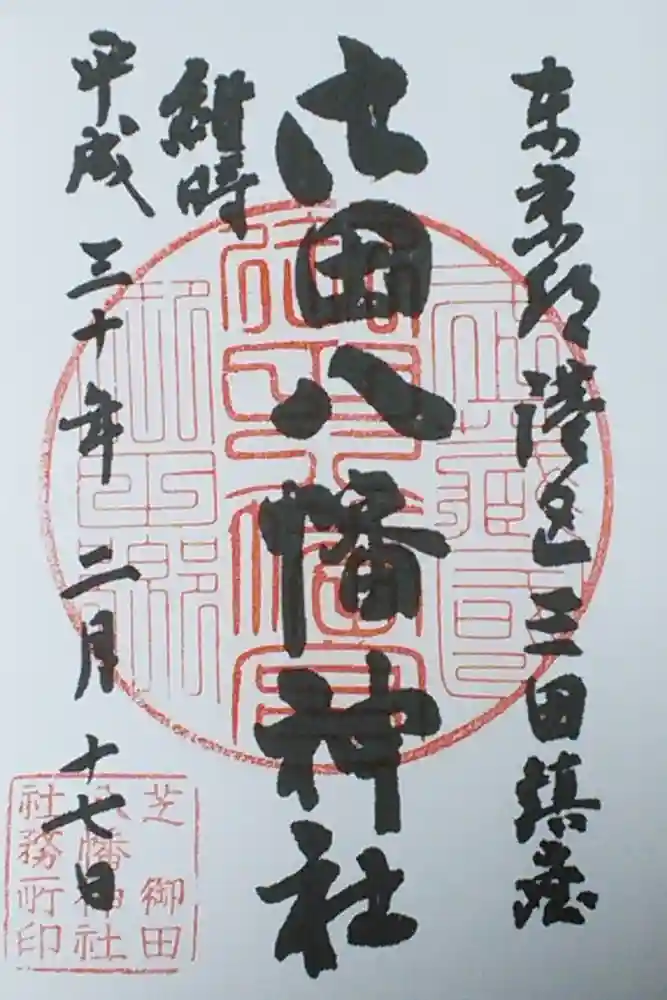 東京都港区三田鎮座
御田八幡神社
維時
平成三十年二月十七日
芝御田
八幡神社
社務所印